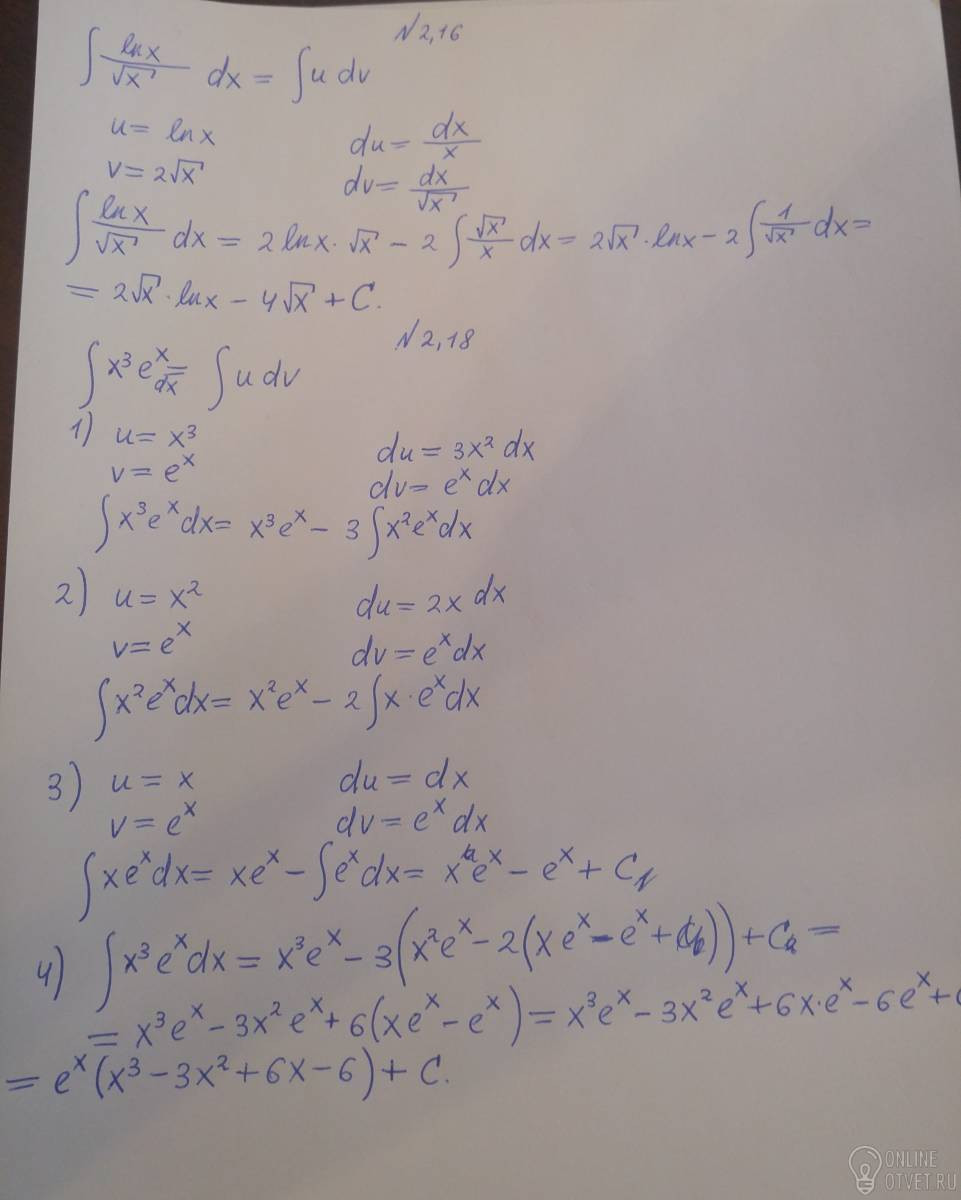 N 2,16
∫ lnx/√x dx = ∫ u dv
u = lnx du = dx/x
v = 2√x dv = dx/√x
∫ lnx/√x dx = 2 lnx · √x − 2 ∫ √x/x dx = 2√x · lnx − 2 ∫ 1/√x dx =
= 2√x · lnx − 4√x + C.
N 2,18
∫ x³eˣ dx = ∫ u dv
1) u = x³ du = 3x² dx
v = eˣ dv = eˣ dx
∫ x³eˣdx = x³eˣ − 3 ∫ x²eˣdx
2) u = x² du = 2x dx
v = eˣ dv = eˣdx
∫ x²eˣdx = x²eˣ − 2 ∫ x · eˣdx
3) u = x du = dx
v = eˣ dv = eˣ dx
∫ xeˣdx = xeˣ − ∫ eˣdx = x eˣ − eˣ + C₁
4) ∫ x³eˣdx = x³eˣ − 3(x²eˣ − 2(xeˣ − eˣ + )) + C₂ =
= x³eˣ − 3x²eˣ + 6(xeˣ − eˣ) = x³eˣ − 3x²eˣ + 6x·eˣ − 6eˣ +
= eˣ(x³ − 3x² + 6x − 6) + C.
ONLINE
OTVET.RU